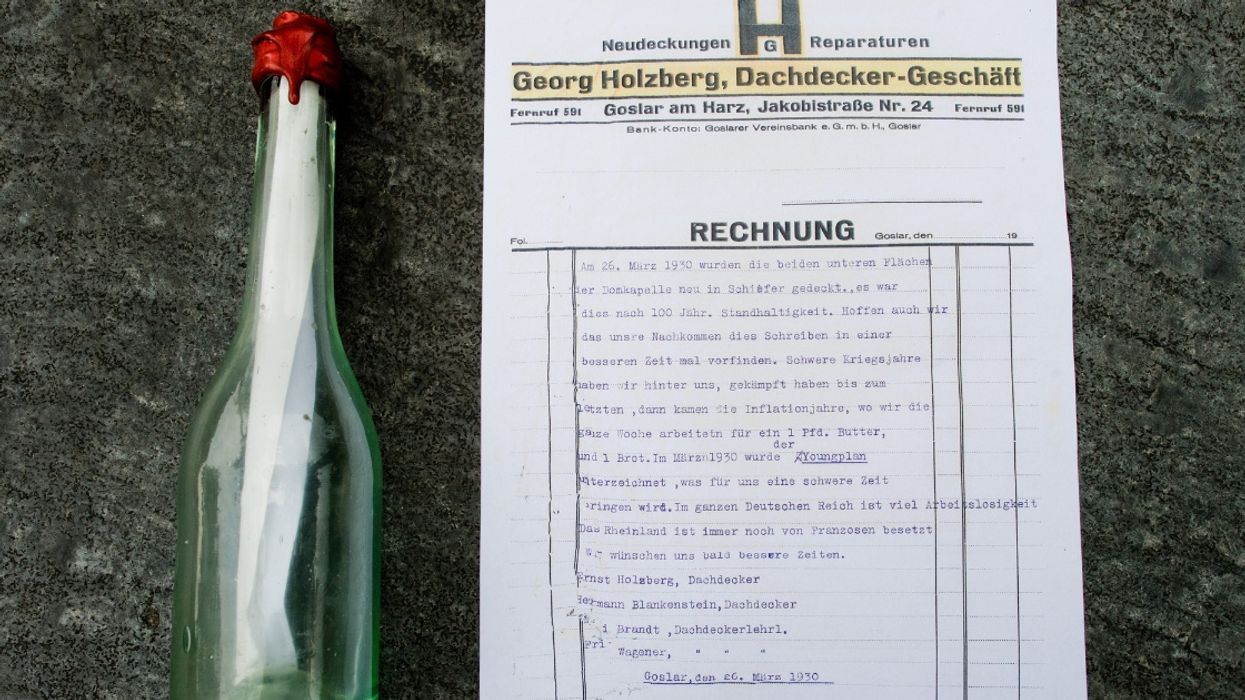 H
G
Neudeckungen Reparaturen
Georg Holzberg, Dachdecker-Geschäft
Fernruf 591 Goslar am Harz, Jakobistraße Nr. 24 Fernruf 591
Bank-Konto: Goslarer Vereinsbank e. G. m. b. H., Goslar
RECHNUNG
Fol. Goslar, den 19
Am 26. März 1930 wurden die beiden unteren Flächen
er Domkapelle neu in Schiefer gedeckt.,es war
dies nach 100 Jähr. Standhaltigkeit. Hoffen auch wir
das unsre Nachkommen dies Schreiben in einer
besseren Zeit mal vorfinden. Schwere Kriegsjahre
haben wir hinter uns, gekämpft haben bis zum
letzten ,dann kamen die Inflationjahre, wo wir die
ganze Woche arbeitetn für ein 1 Pfd. Butter,
der
und 1 Brot.Im März 1930 wurde Youngplan
unterzeichnet ,was für uns eine schwere Zeit
bringen wird.Im ganzen Deutschen Reich ist viel Arbeitslosigkeit
Das Rheinland ist immer noch von Franzosen besetzt
Wir wünschen uns bald bessere Zeiten.
Ernst Holzberg, Dachdecker
Hermann Blankenstein,Dachdecker
i Brandt ,Dachdeckerlehrl.
Fri Wagener, " " "
Goslar,den 26. März 1930